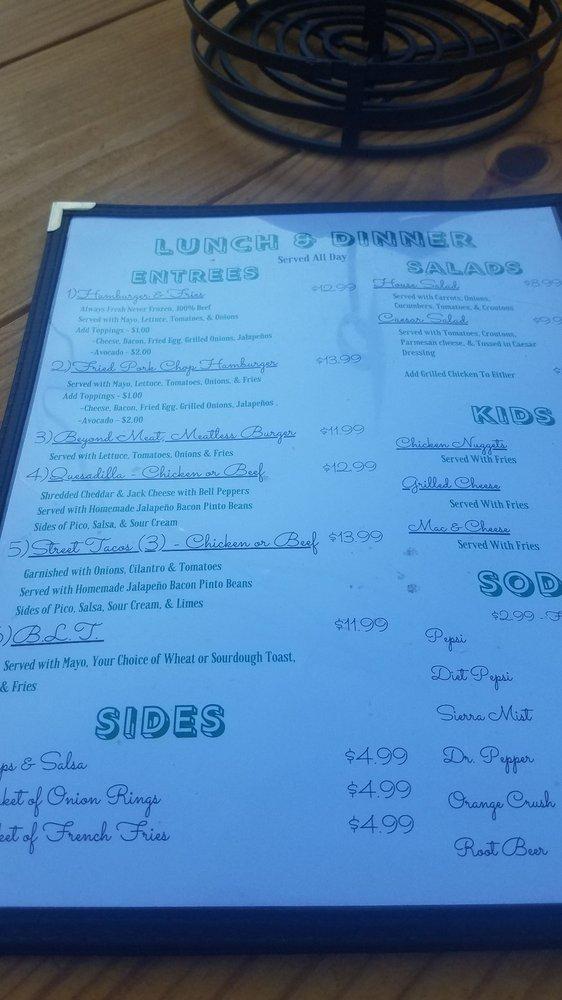 LUNCH & DINNER
Served All Day
ENTREES
1) Hamburger & Fries $12.99
Always Fresh Never Frozen, 100% Beef
Served with Mayo, Lettuce, Tomatoes, & Onions
Add Toppings - $1.00
-Cheese, Bacon, Fried Egg, Grilled Onions, Jalapeños
-Avocado - $2.00
2) Fried Pork Chop Hamburger $13.99
Served with Mayo, Lettuce, Tomatoes, Onions, & Fries
Add Toppings - $1.00
-Cheese, Bacon, Fried Egg, Grilled Onions, Jalapeños
-Avocado - $2.00
3) Beyond Meat, Meatless Burger $11.99
Served with Lettuce, Tomatoes, Onions & Fries
4) Quesadilla - Chicken or Beef $12.99
Shredded Cheddar & Jack Cheese with Bell Peppers
Served with Homemade Jalapeño Bacon Pinto Beans
Sides of Pico, Salsa, & Sour Cream
5) Street Tacos (3) - Chicken or Beef $13.99
Garnished with Onions, Cilantro & Tomatoes
Served with Homemade Jalapeño Bacon Pinto Beans
Sides of Pico, Salsa, Sour Cream, & Limes
) B.L.T. $11.99
Served with Mayo, Your Choice of Wheat or Sourdough Toast,
& Fries
SIDES
ps & Salsa $4.99
ket of Onion Rings $4.99
ket of French Fries $4.99
SALADS
House Salad $8.99
Served with Carrots, Onions,
Cucumbers, Tomatoes, & Croutons
Caesar Salad $9.9
Served with Tomatoes, Croutons,
Parmesan cheese, & Tossed in Caesar
Dressing
Add Grilled Chicken To Either $
KIDS
Chicken Nuggets
Served With Fries
Grilled Cheese
Served With Fries
Mac & Cheese
Served With Fries
SOD
$2.99 - F
Pepsi
Diet Pepsi
Sierra Mist
Dr. Pepper
Orange Crush
Root Beer